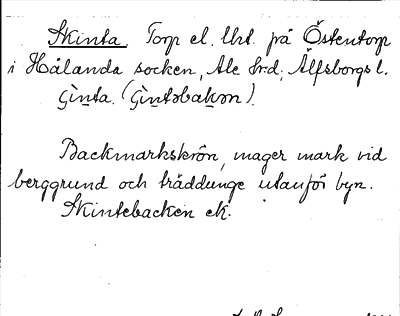 Skinta. Torp el. lht. på Östentorp
i Hålanda socken, Ale hrd; Älfsborgs l.
Gi̱nta. (Gi̱ntəbakən).
Backmarkskrön, mager mark vid
berggrund och träddunge utanför byn.
Skintebacken ek.